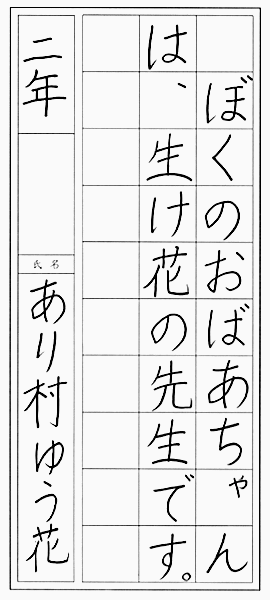 ぼくのおばあちゃん
は、生け花の先生です。
二年
氏名
あり村ゆう花